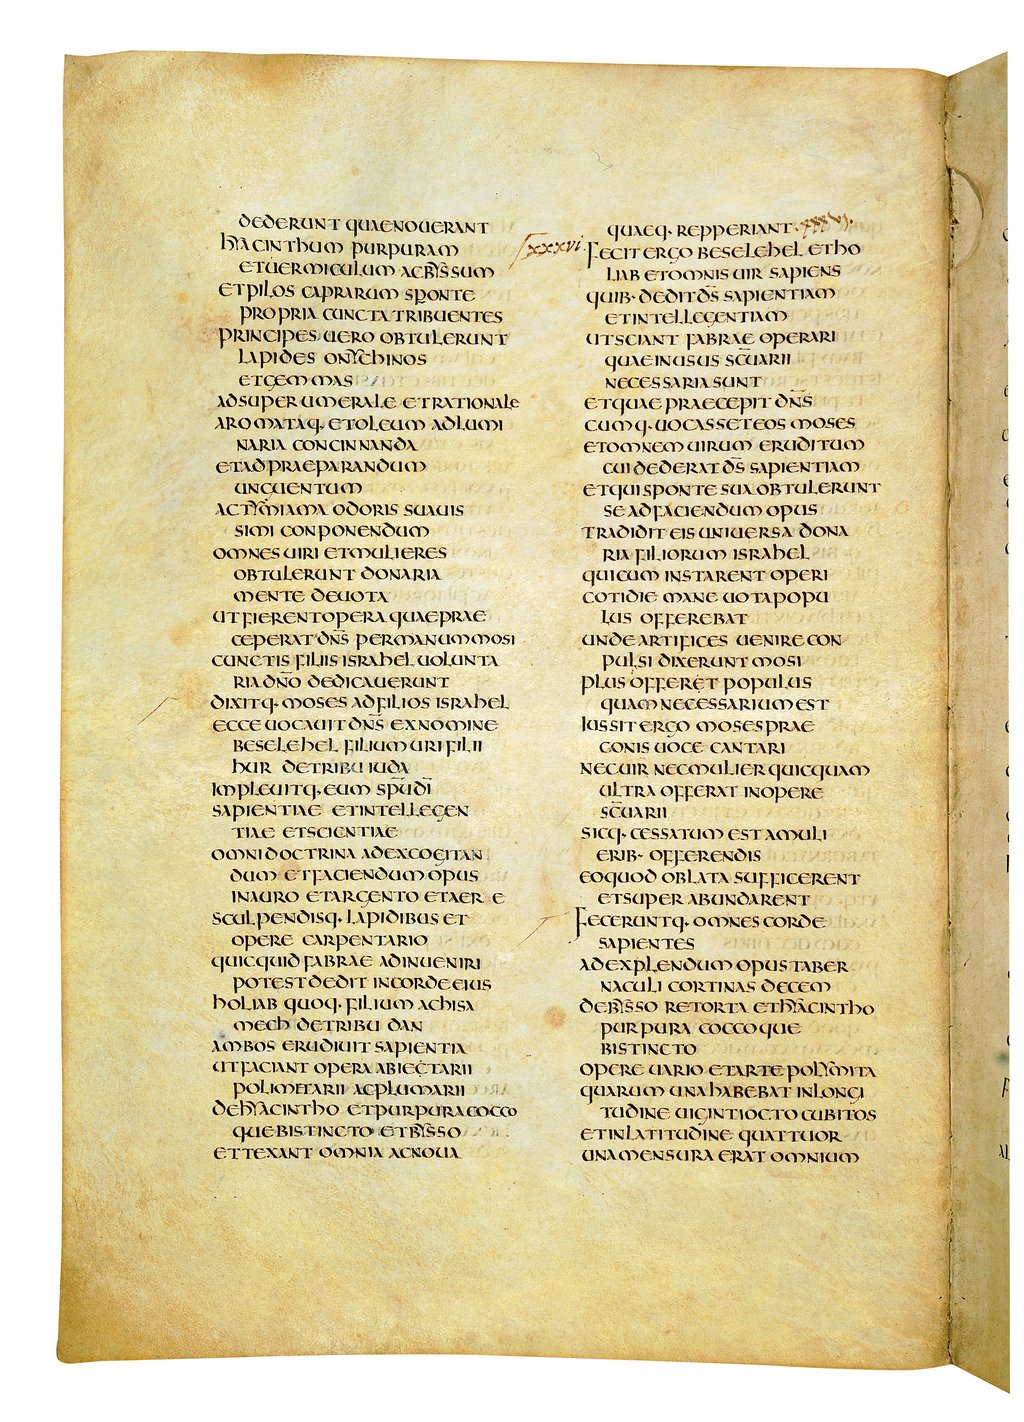 DEDERUNT QUAENOUERANT
HYACINTHUM PURPURAM
ETUERMICULUM ACBYSSUM
ETPILOS CAPRARUM SPONTE
PROPRIA CUNCTA TRIBUENTES
PRINCIPES UERO OBTULERUNT
LAPIDES ONYCHINOS
ETGEMMAS
ADSUPERUMERALE ETRATIONALE
AROMATAQ· ETOLEUM ADLUMI
NARIA CONCINNANDA
ETADPRAEPARANDUM
UNGUENTUM
ACTHYMIAMA ODORIS SUAUIS
SIMI CONPONENDUM
OMNES UIRI ETMULIERES
OBTULERUNT DONARIA
MENTE DEUOTA
UTFIERENTOPERA QUAEPRAE
CEPERAT DN̄S PERMANUMMOSI
CUNCTIS FILIIS ISRAHEL UOLUNTA
RIA DN̄O DEDICAUERUNT
DIXITQ· MOSES ADFILIOS ISRAHEL
ECCE UOCAUIT DN̄S EXNOMINE
BESELEHEL FILIUM URI FILII
HUR DETRIBU IUDA
IMPLEUITQ· EUM SP̄U DĪ
SAPIENTIAE ETINTELLEGEN
TIAE ETSCIENTIAE
OMNI DOCTRINA ADEXCOGITAN
DUM ETFACIENDUM OPUS
INAURO ETARGENTO ETAERE
SCULPENDISQ· LAPIDIBUS ET
OPERE CARPENTARIO
QUICQUID FABRAE ADINUENIRI
POTEST DEDIT INCORDE EIUS
HOLIAB QUOQ· FILIUM ACHISA
MECH DETRIBU DAN
AMBOS ERUDIUIT SAPIENTIA
UTFACIANT OPERA ABIECTARII
POLIMETARII ACPLUMARII
DEHYACINTHO ETPURPURA COCCO
QUE BISTINCTO ETBYSSO
ETTEXANT OMNIA ACNOUA
QUAEQ· REPPERIANT· xxxvi.
xxxvi. FECIT ERGO BESELEHEL ETHO
LIAB ETOMNIS UIR SAPIENS
QUIB· DEDIT DS̄ SAPIENTIAM
ETINTELLEGENTIAM
UTSCIANT FABRAE OPERARI
QUAE INUSUS SC̄UARII
NECESSARIA SUNT
ETQUAE PRAECEPIT DN̄S
CUMQ· UOCASSET EOS MOSES
ETOMNEM UIRUM ERUDITUM
CUI DEDERAT DS̄ SAPIENTIAM
ETQUI SPONTE SUA OBTULERUNT
SE ADFACIENDUM OPUS
TRADIDIT EIS UNIUERSA DONA
RIA FILIORUM ISRAHEL
QUI CUM INSTARENT OPERI
COTIDIE MANE UOTA POPU
LUS OFFEREBAT
UNDE ARTIFICES UENIRE CON
PULSI DIXERUNT MOSI
PLUS OFFERET POPULUS
QUAM NECESSARIUM EST
IUSSIT ERGO MOSES PRAE
CONIS UOCE CANTARI
NEC UIR NEC MULIER QUICQUAM
ULTRA OFFERAT INOPERE
SC̄UARII
SICQ· CESSATUM EST AMULI
ERIB· OFFERENDIS
EOQUOD OBLATA SUFFICERENT
ETSUPER ABUNDARENT
FECERUNTQ· OMNES CORDE
SAPIENTES
ADEXPLENDUM OPUS TABER
NACULI CORTINAS DECEM
DEBYSSO RETORTA ETHYACINTHO
PURPURA COCCOQUE
BISTINCTO
OPERE UARIO ETARTE POLYMITA
QUARUM UNA HABEBAT INLONGI
TUDINE UIGINTI OCTO CUBITOS
ETINLATITUDINE QUATTUOR
UNA MENSURA ERAT OMNIUM